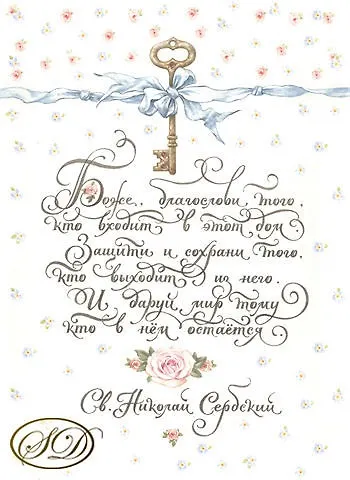 Боже, благослови того,
кто входит в этот дом.
Защити и сохрани того,
кто выходит из него.
И даруй мир тому
кто в нём остаётся.
Св. Николай Сербский
SD